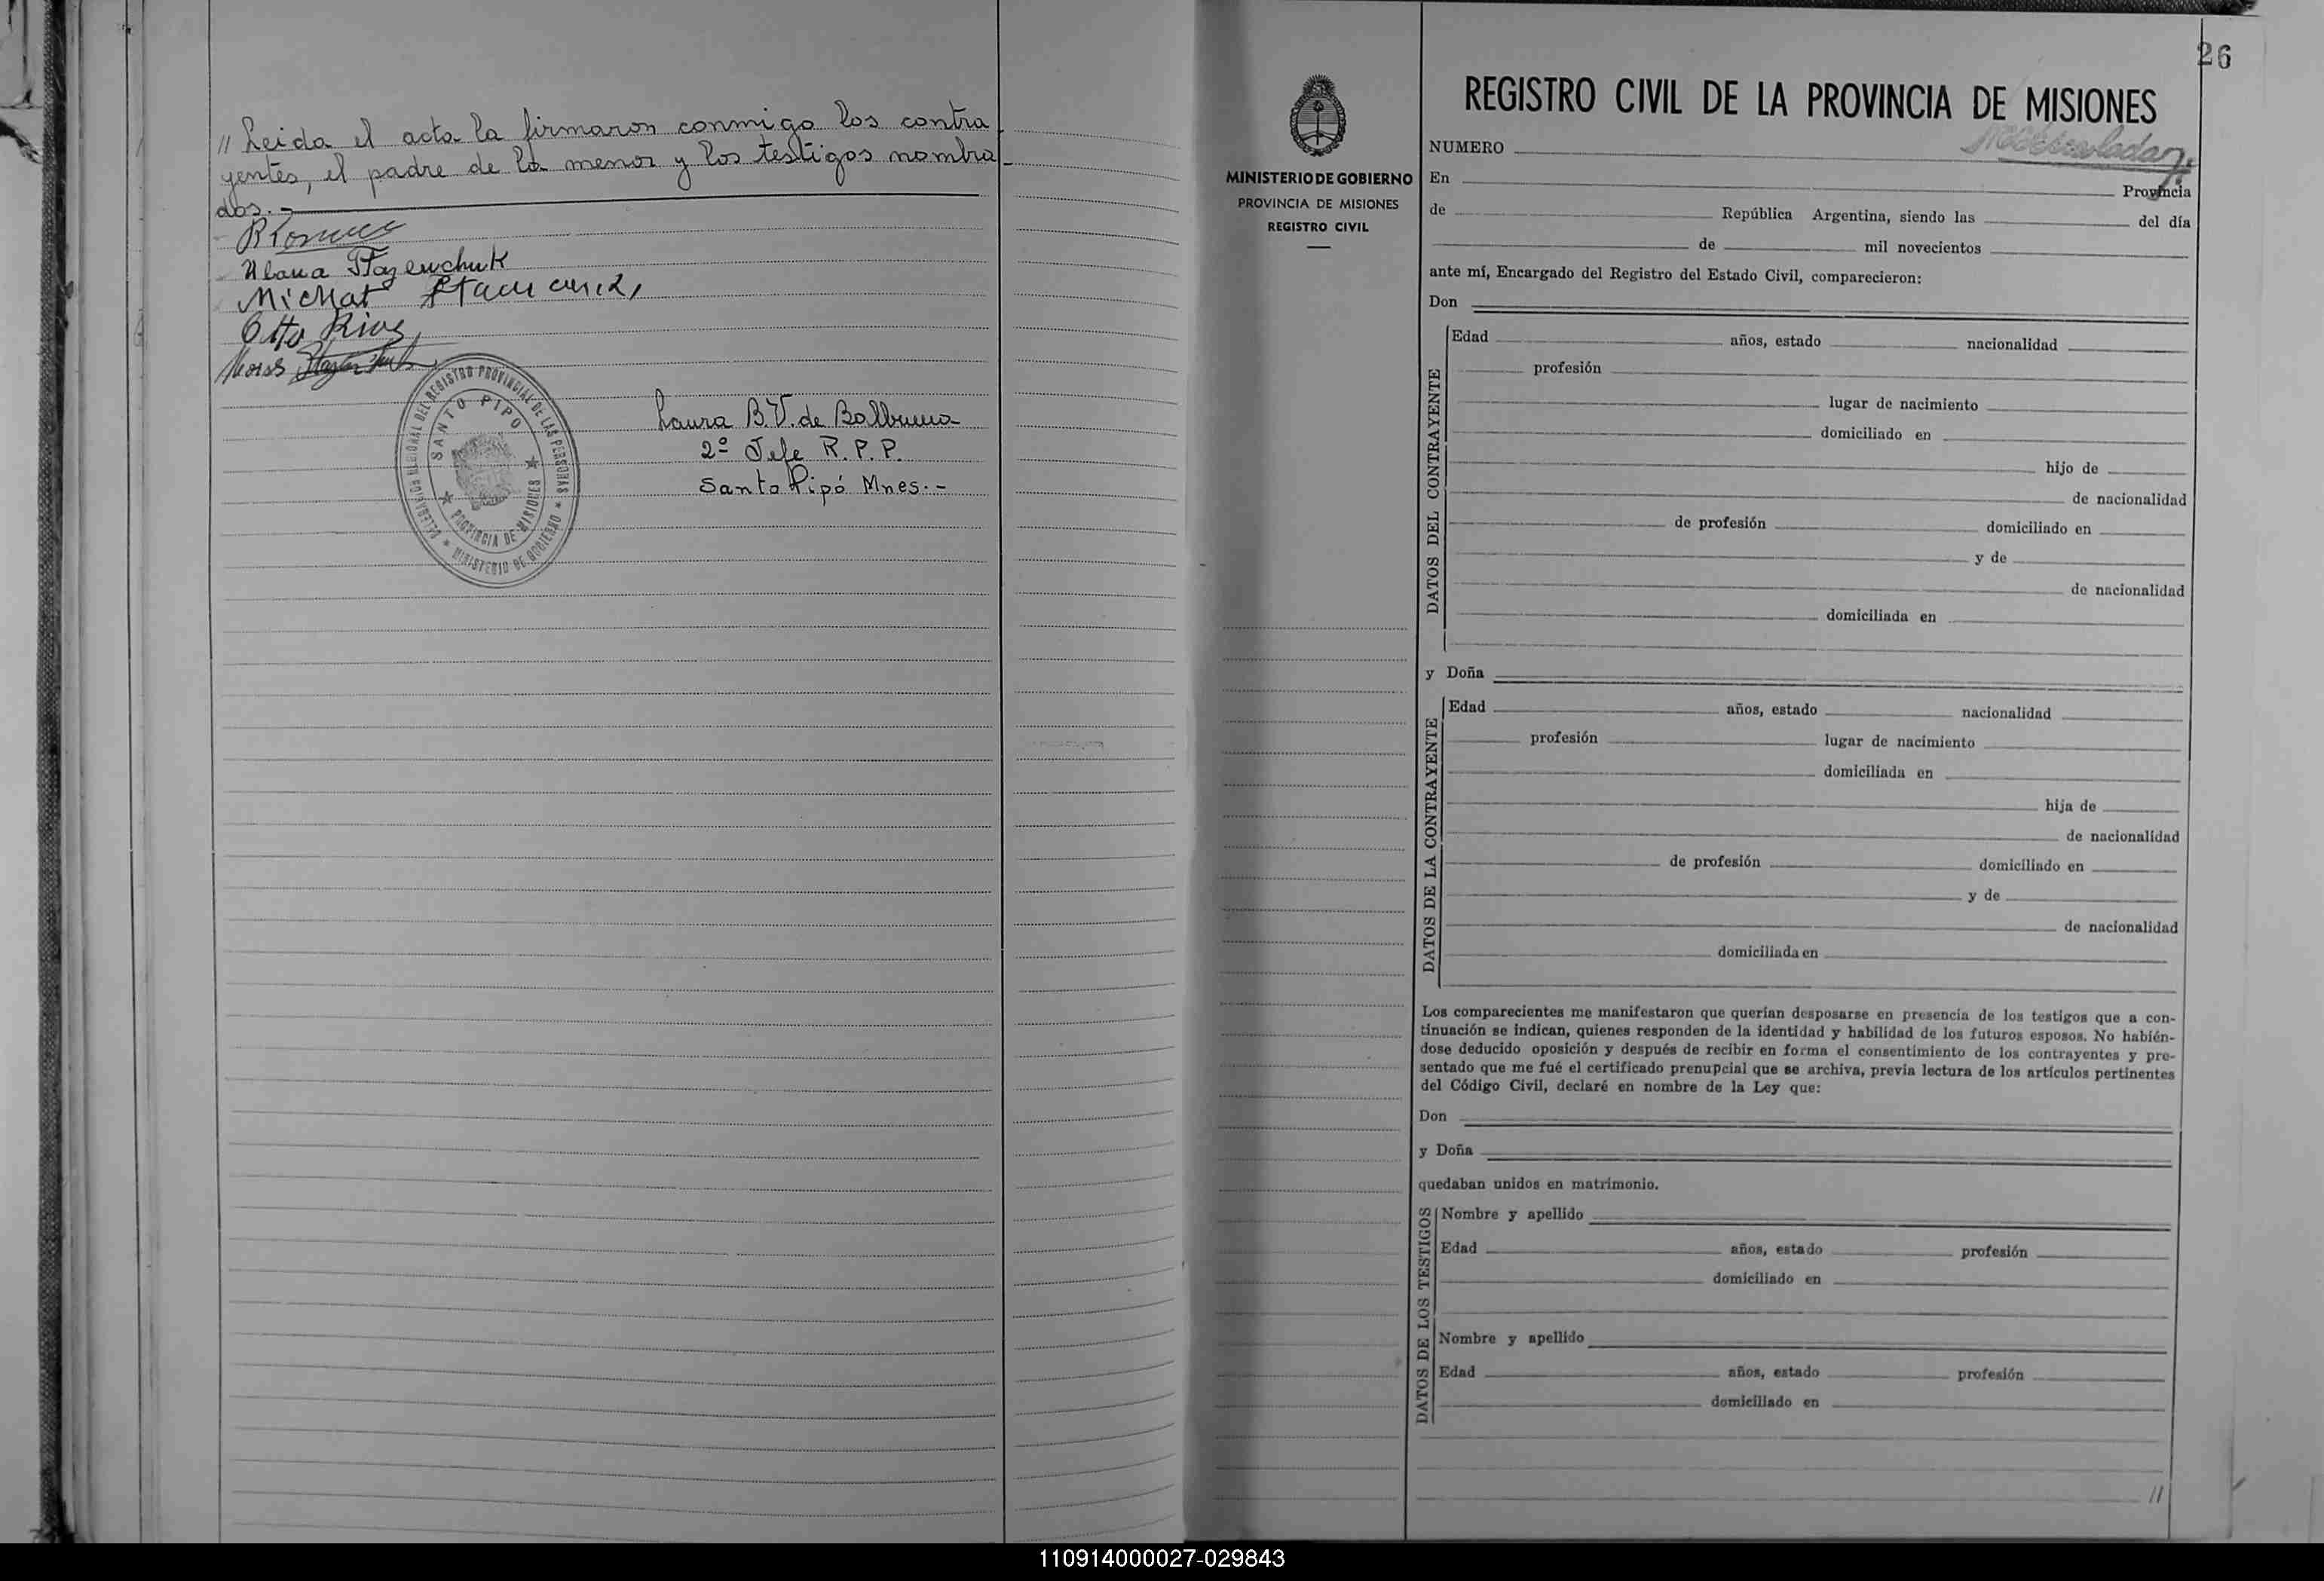 // Leida el acta la firmaron conmigo los contra
yentes, el padre de la menor y los testigos nombra-
dos.-
Michat
Otto
Laura B.V. de Balbuena
2º Jefe R. P. P.
Santo Pipó Mnes.-
DELEGACION REGIONAL DEL REGISTRO PROVINCIAL DE LAS PERSONAS
MINISTERIO DE GOBIERNO
SANTO PIPO
PROVINCIA DE MISIONES
26
MINISTERIO DE GOBIERNO
PROVINCIA DE MISIONES
REGISTRO CIVIL
REGISTRO CIVIL DE LA PROVINCIA DE MISIONES
NUMERO
En Provincia
de República Argentina, siendo las del día
de mil novecientos
ante mí, Encargado del Registro del Estado Civil, comparecieron:
Don
DATOS DEL CONTRAYENTE
Edad años, estado nacionalidad
profesión
lugar de nacimiento
domiciliado en
hijo de
de nacionalidad
de profesión domiciliado en
y de
de nacionalidad
domiciliada en
y Doña
DATOS DE LA CONTRAYENTE
Edad años, estado nacionalidad
profesión lugar de nacimiento
domiciliada en
hija de
de nacionalidad
de profesión domiciliado en
y de
de nacionalidad
domiciliada en
Los comparecientes me manifestaron que querían desposarse en presencia de los testigos que a con-
tinuación se indican, quienes responden de la identidad y habilidad de los futuros esposos. No habién-
dose deducido oposición y después de recibir en forma el consentimiento de los contrayentes y pre-
sentado que me fué el certificado prenupcial que se archiva, previa lectura de los artículos pertinentes
del Código Civil, declaré en nombre de la Ley que:
Don
y Doña
quedaban unidos en matrimonio.
DATOS DE LOS TESTIGOS
Nombre y apellido
Edad años, estado profesión
domiciliado en
Nombre y apellido
Edad años, estado profesión
domiciliado en
//
110914000027-029843